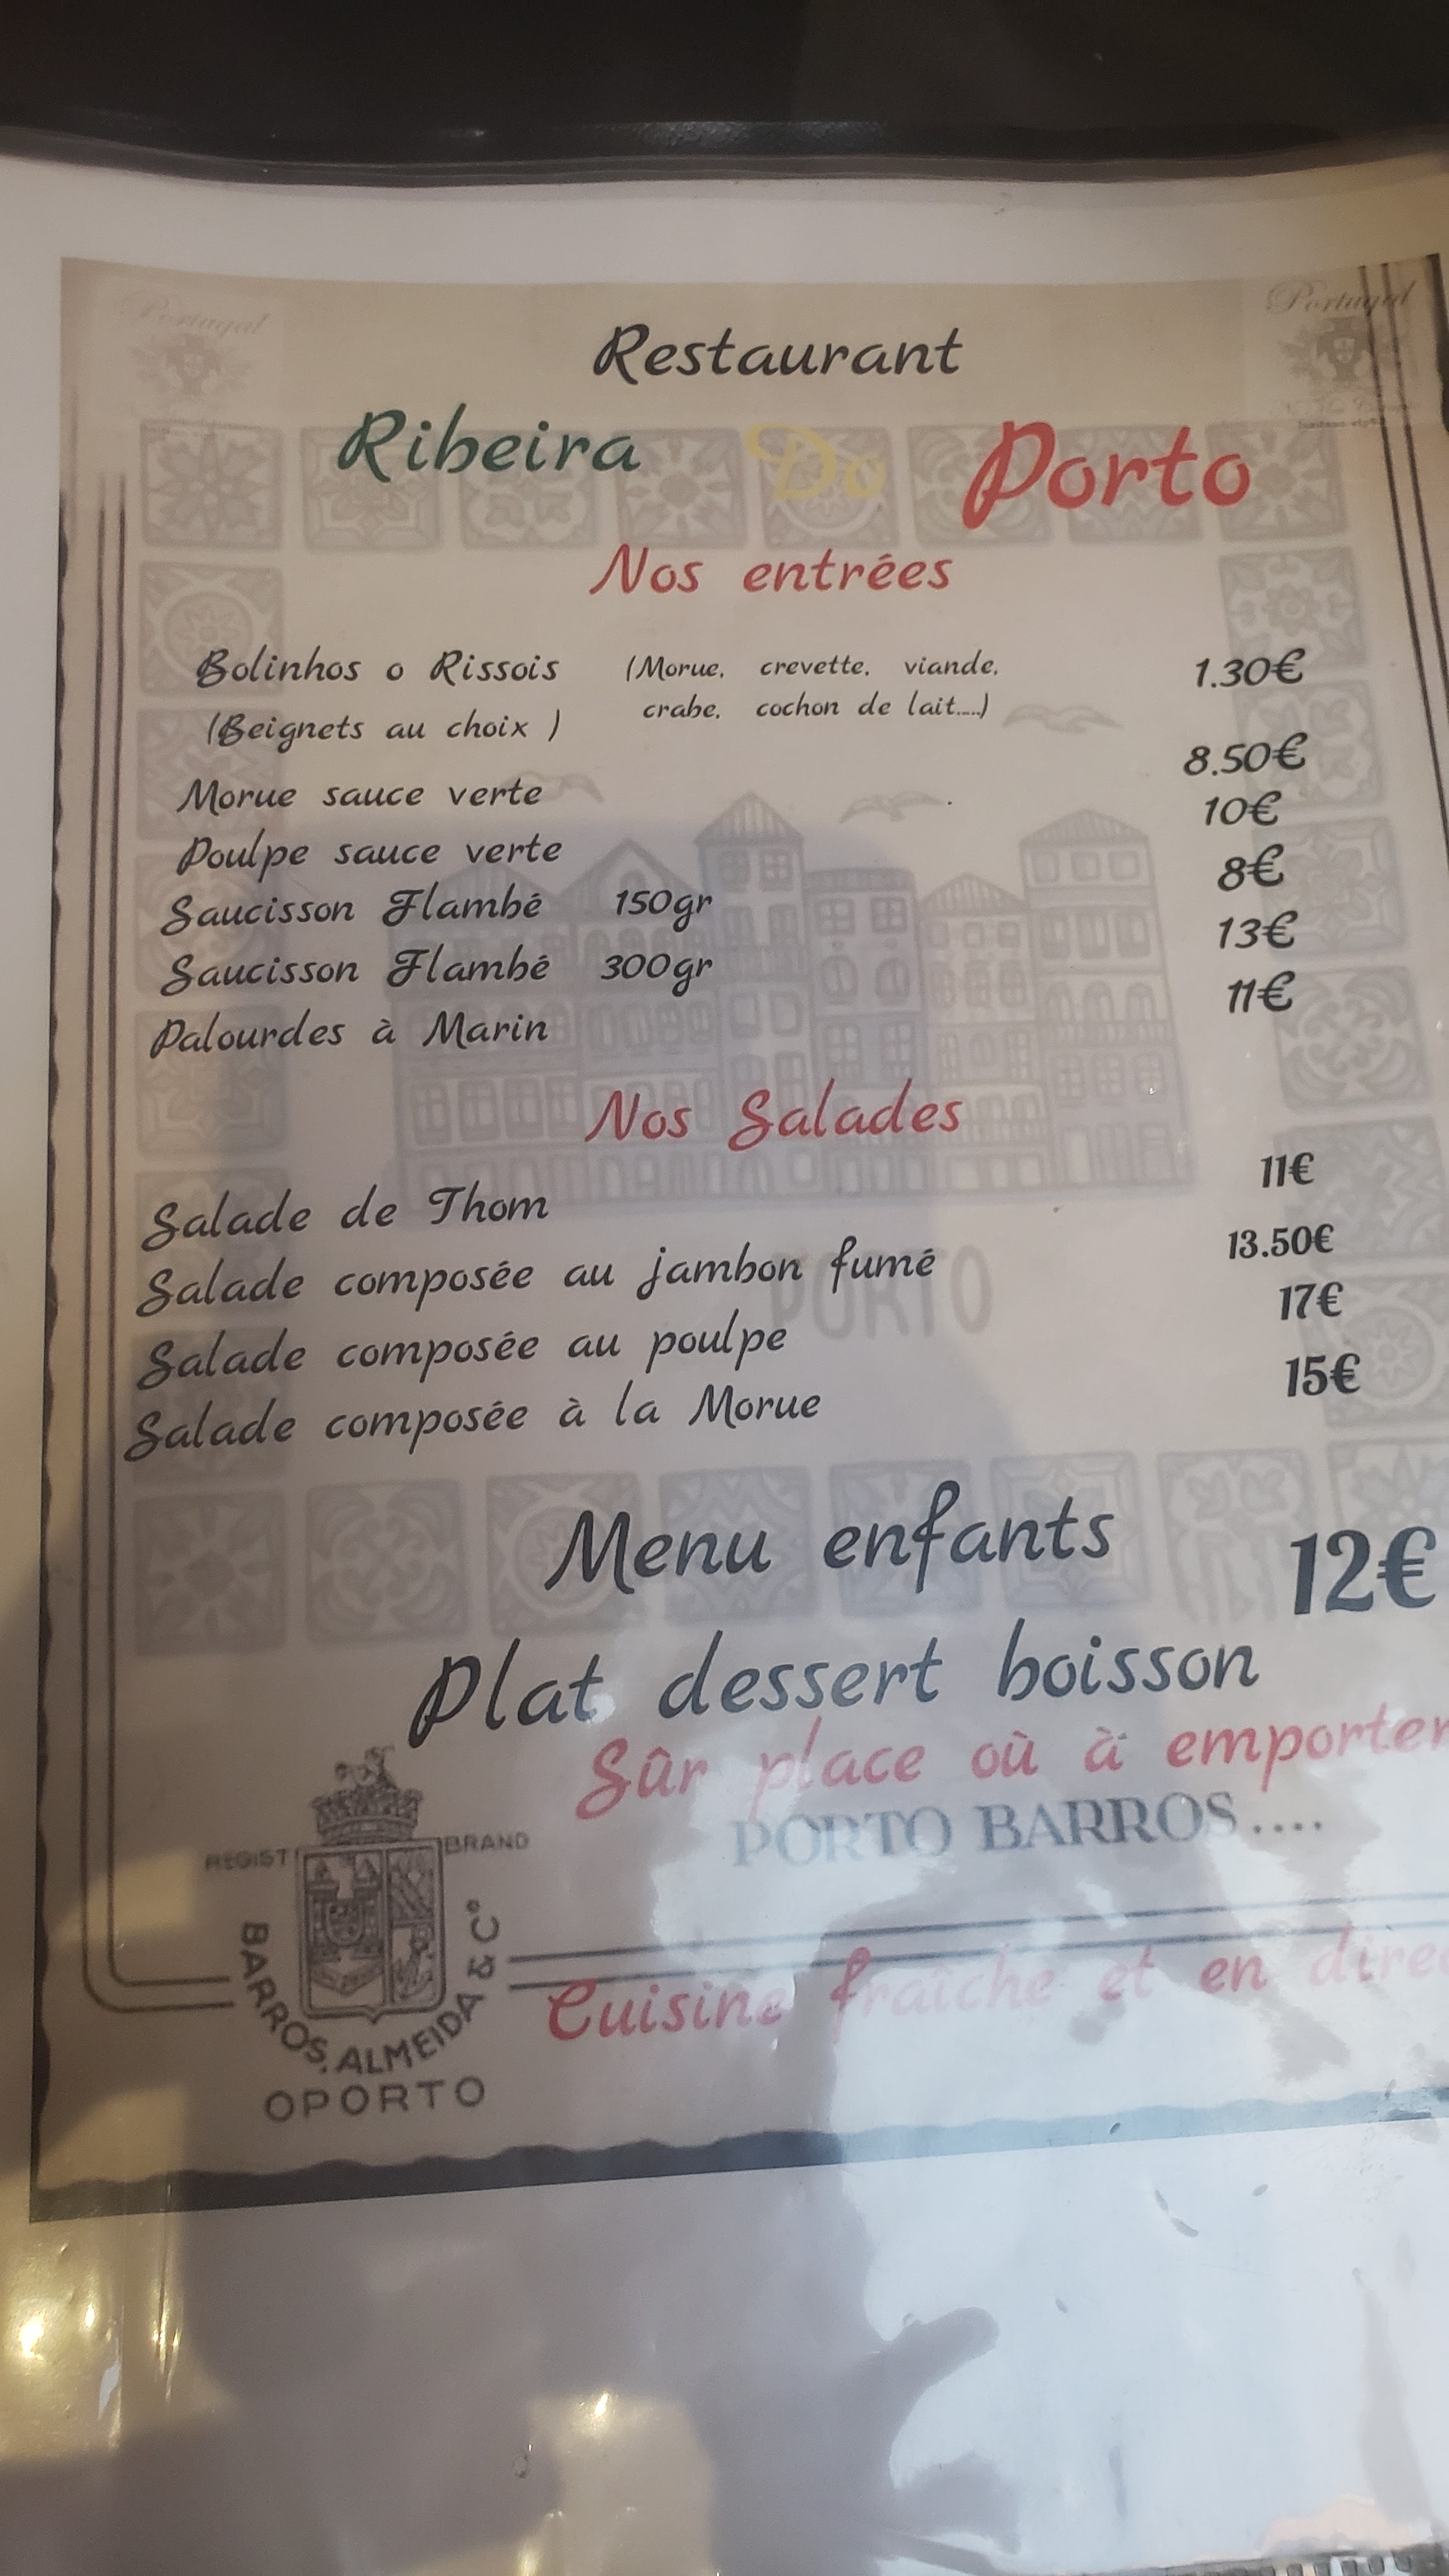 Portugal
Portugal
Restaurant
Ribeira Do Porto
Nos entrées
Bolinhos o Rissois (Morue, crevette, viande, 1.30€
(Beignets au choix ) crabe, cochon de lait.....)
Morue sauce verte 8.50€
Poulpe sauce verte 10€
Saucisson Flambé 150gr 8€
Saucisson Flambé 300gr 13€
Palourdes à Marin 11€
Nos Salades
Salade de Thom 11€
Salade composée au jambon fumé 13.50€
PORTO
Salade composée au poulpe 17€
Salade composée à la Morue 15€
Menu enfants 12€
Plat dessert boisson
Sûr place où à emporter
PORTO BARROS....
REGIST BRAND
BARROS, ALMEIDA & Cº
OPORTO
Cuisine fraîche et en direc